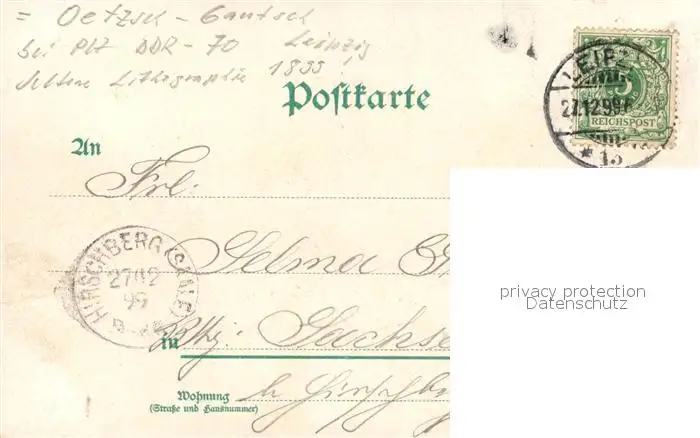 = Oetzsch - Gautsch
bei Plz DDR - 70 Leipzig
Seltene Lithographie 1899!
Postkarte
LEIPZIG
27.12.99
* 13
5
REICHSPOST
An
Frl.
Selma
HIRSCHBERG (SAALE)
27/12
99
in
Sachse
privacy protection
Datenschutz
Wohnung
(Straße und Hausnummer)
b. Hirschb